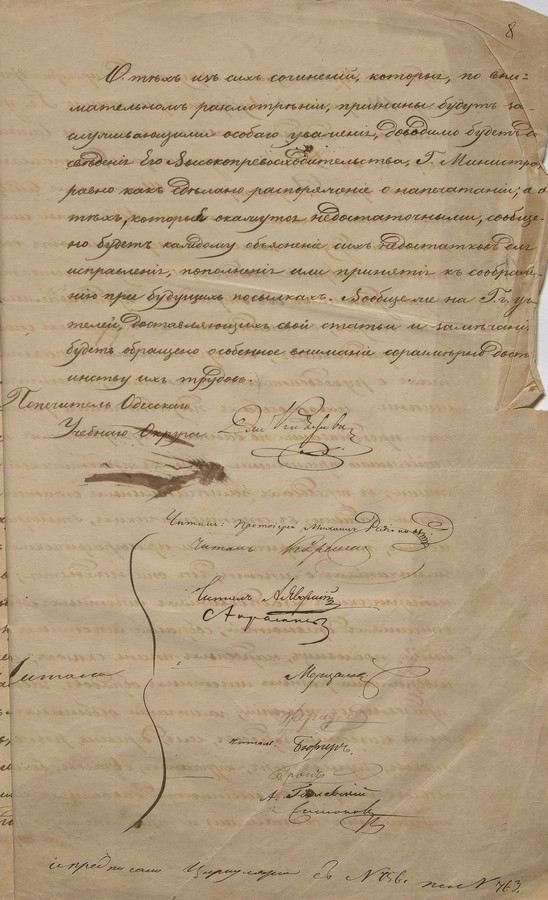 8
О тѣхъ изъ сихъ сочиненій, которыя, по вни-
мательномъ разсмотрѣніи, признаны будутъ за-
служивающими особаго уваженія, доводимо будетъ до
свѣденія Его Высокопревосходительства, Г. Министра,
равно какъ сдѣлано распоряженіе о напечатаніи; а о
тѣхъ, которыя окажутся недостаточными, сообще-
но будетъ каждому объясненіе сихъ недостатковъ для
исправленія, пополненія или принятія къ соображе-
нію при будущихъ посылкахъ. Вообще же на Гг. учи-
телей, доставляющихъ свои статьи и замѣчанія
будетъ обращено особенное вниманіе соразмѣрно досто-
инству ихъ трудовъ.
Попечитель Одесскаго
Учебнаго Округа
Читалъ: Протоіерей Михаилъ
Читалъ
Читалъ
Читали
читалъ Бюргеръ.
А.
Симоновъ
и предписано Циркулярно съ N 756. по N 763.